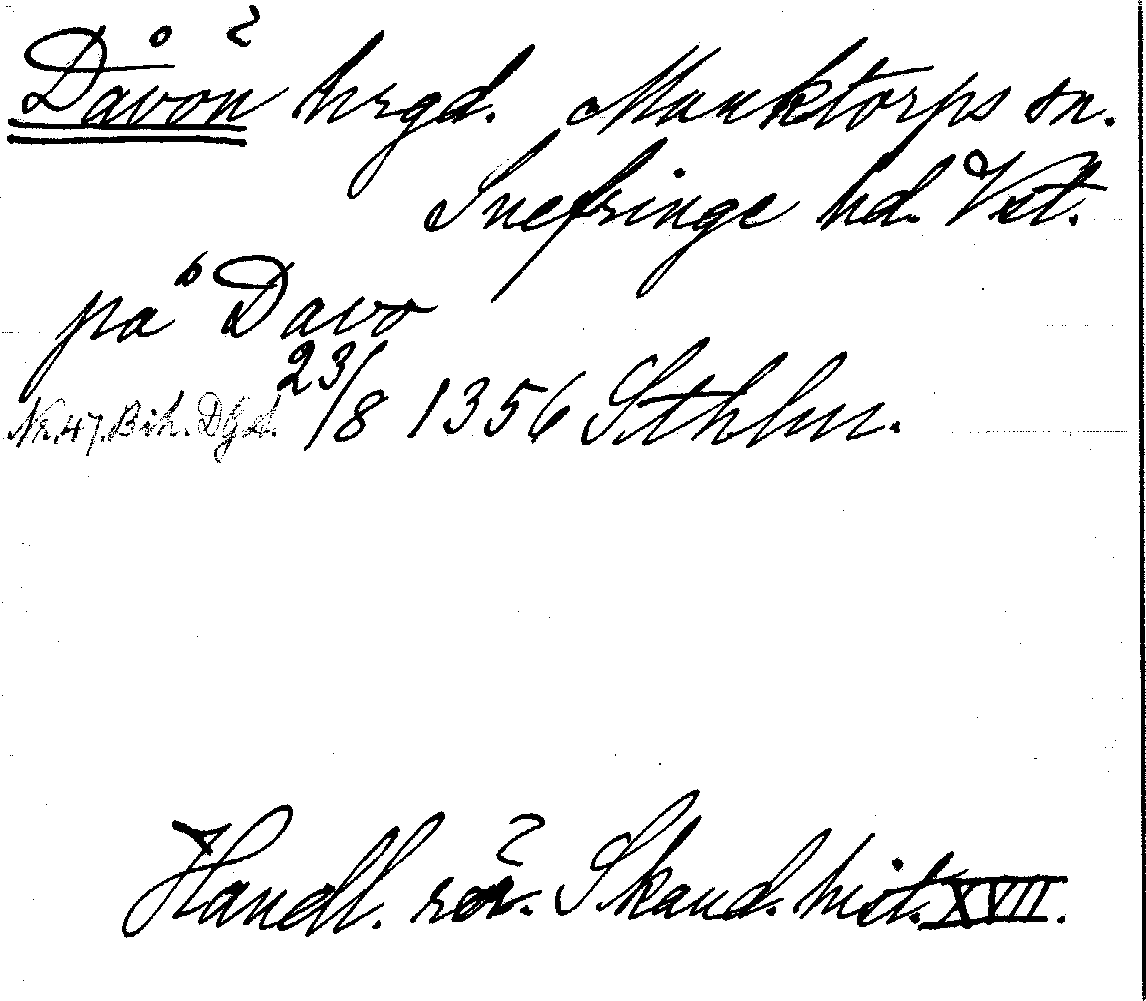 Dåvön hrgd. Munktorps sn.
Snefringe hd. Vst.
på Davo
Nr.47.Bih.DGd. 23/8 1356 Sthlm.
Handl. rör. Skand. hist. XVII.